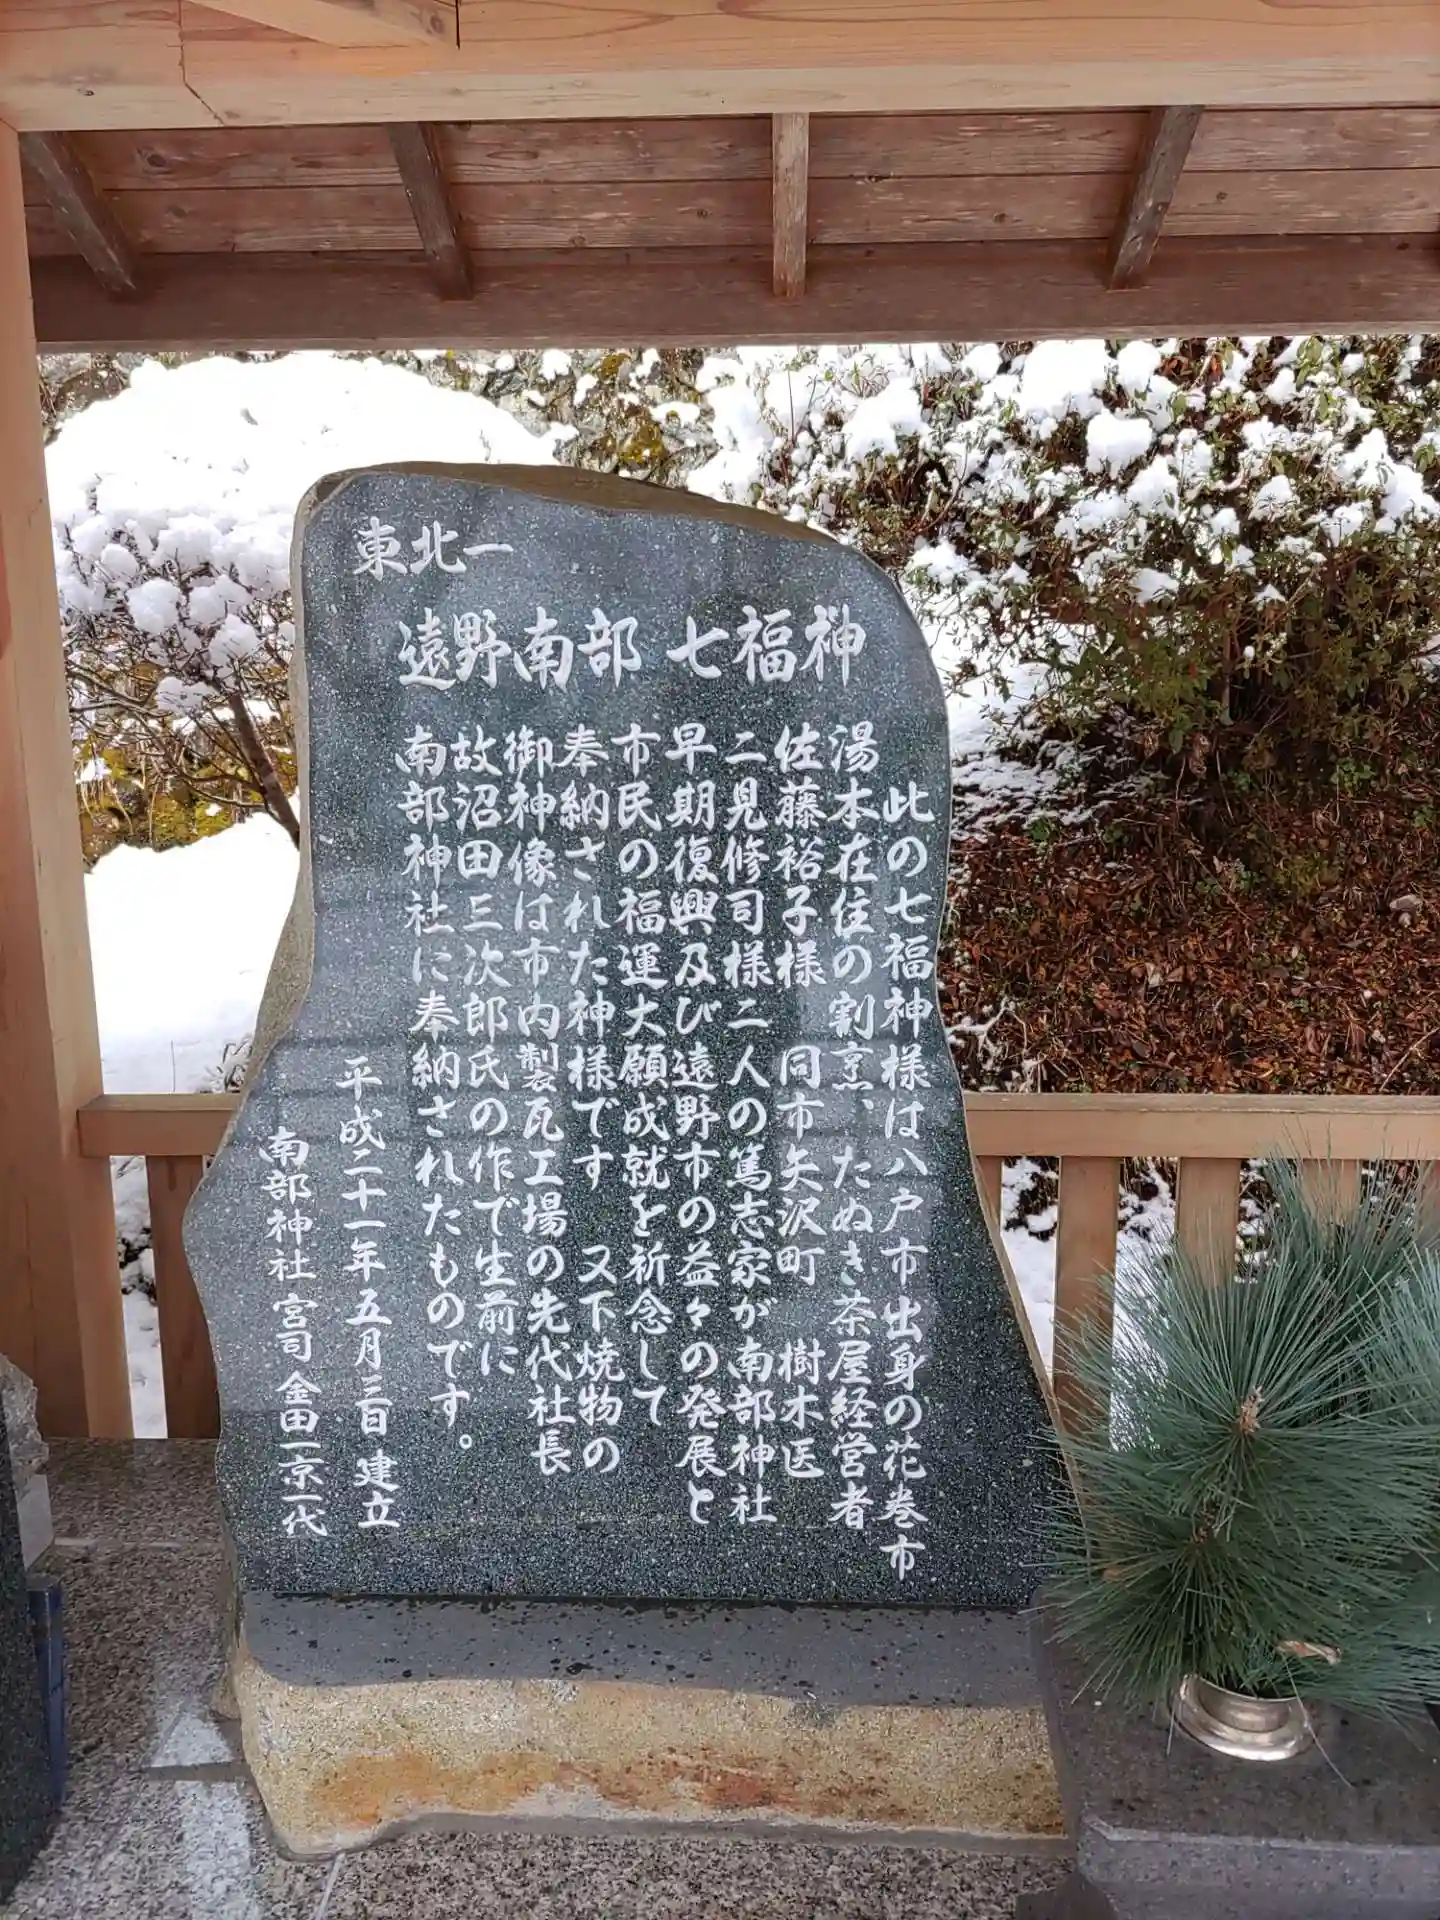 東北一
遠野南部 七福神
此の七福神様は八戸市出身の花巻市
湯本在住の割烹、たぬき茶屋経営者
佐藤裕子様 同市矢沢町 樹木医
二見修司様二人の篤志家が南部神社
早期復興及び遠野市の益々の発展と
市民の福運大願成就を祈念して
奉納された神様です 又下焼物の
御神像は市内製瓦工場の先代社長
故沼田三次郎氏の作で生前に
南部神社に奉納されたものです。
平成二十一年五月三日 建立
南部神社 宮司 金田一京一代